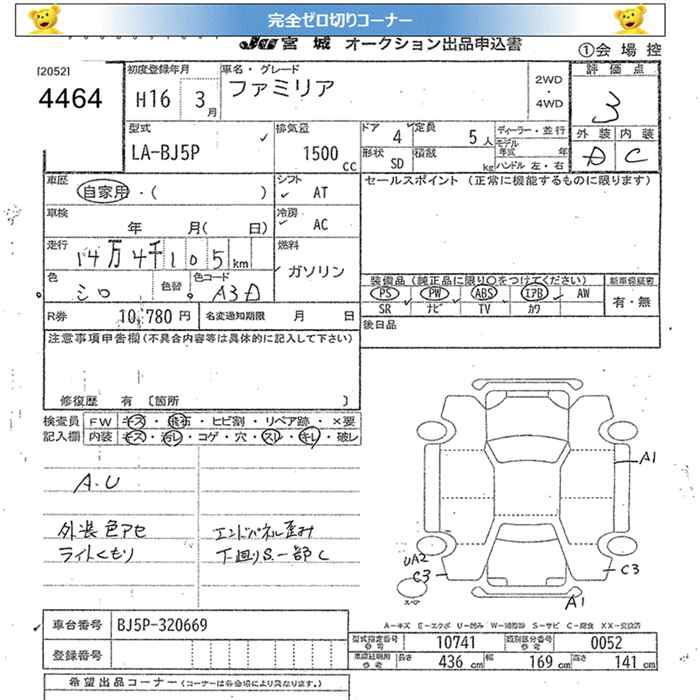 完全ゼロ切りコーナー
JU 宮城 オークション出品申込書 ①会場控
[2052]
4464
初度登録年月 H16 3月
車名・グレード ファミリア
2WD・4WD
評価点 3
型式 LA-BJ5P
排気量 1500 cc
ドア 4
定員 5人
形状 SD
積載 kg
ディーラー・並行
モデル年式 年
ハンドル 左・右
外装 内装 C
車歴 自家用・( )
シフト AT
セールスポイント (正常に機能するものに限ります)
車検 年 月( 日)
冷房 AC
走行 14万4千105km
燃料 ガソリン
色 シロ
色替
色コード A3D
装備品 (純正品に限り○をつけてください)
PS PW ABS エアB AW
SR ナビ TV カワ
新車保証書 有・無
R券 10,780円
名変通知期限 月 日
後日品
注意事項申告欄(不具合内容等は具体的に記入して下さい)
修復歴 有 〔箇所 〕
検査員記入欄
FW キズ・飛石・ヒビ割・リペア跡・×要
内装 キズ・汚レ・コゲ・穴・スレ・キレ・破レ
A.U
外装色アセ
ライトくもり
エンドパネル歪み
下廻りS.一部C
A1
UA2
C3
C3
スペア
A1
A-キズ E-エクボ U-凹み W-補修跡 S-サビ C-腐食 XX-交換済
車台番号 BJ5P-320669
登録番号
型式指定番号参考 10741
類別区分番号参考 0052
車検証明用参考 長さ 436cm 幅 169cm 高さ 141cm
希望出品コーナー(コーナーは各会場により異なります)